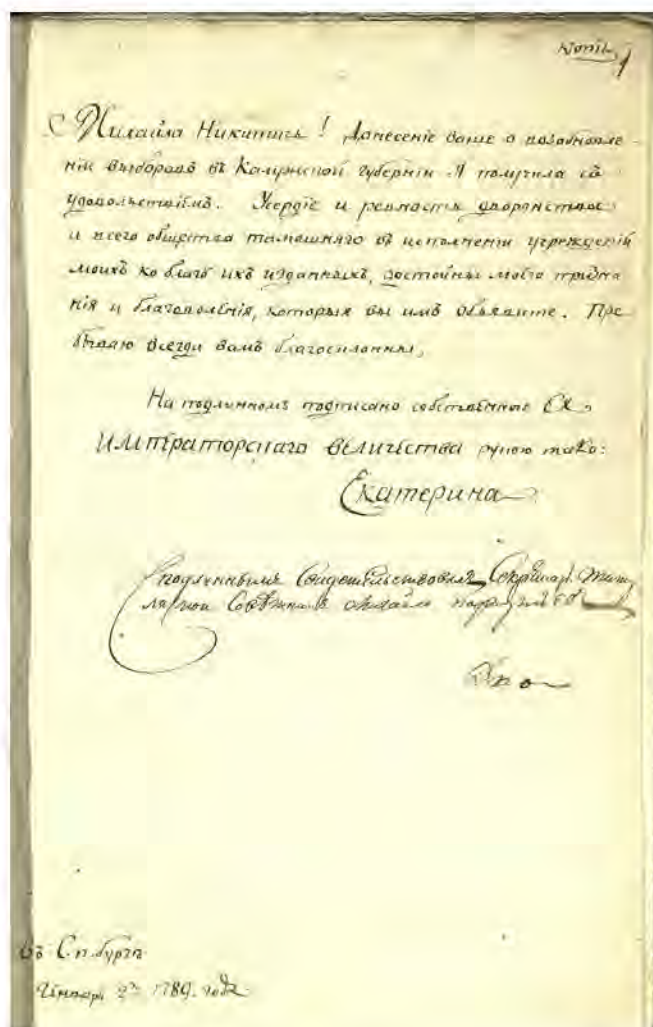 Копiя
Михайла Никитичь! Донесенiе ваше о возобновле-
нiи выборовъ въ Калужской губернiи Я получила съ
удовольствiемъ. Усердiе и ревность дворянства
и всего общества тамошняго въ исполненiи учрежденiй
моихъ ко благу ихъ изданныхъ, достойны моего призна
нiя и благоволенiя, которыя вы имъ объявите. Пре
бываю всегда вамъ благосклонны,
На подлинномъ подписано собственною Ея
Императорскаго величества рукою тако:
Екатерина
Сподлиннымъ свидетельствовалъ Секретарь Титу
лярной Советникъ Михайло
Въ С.п.бургѣ
Генваря 2го 1789. года